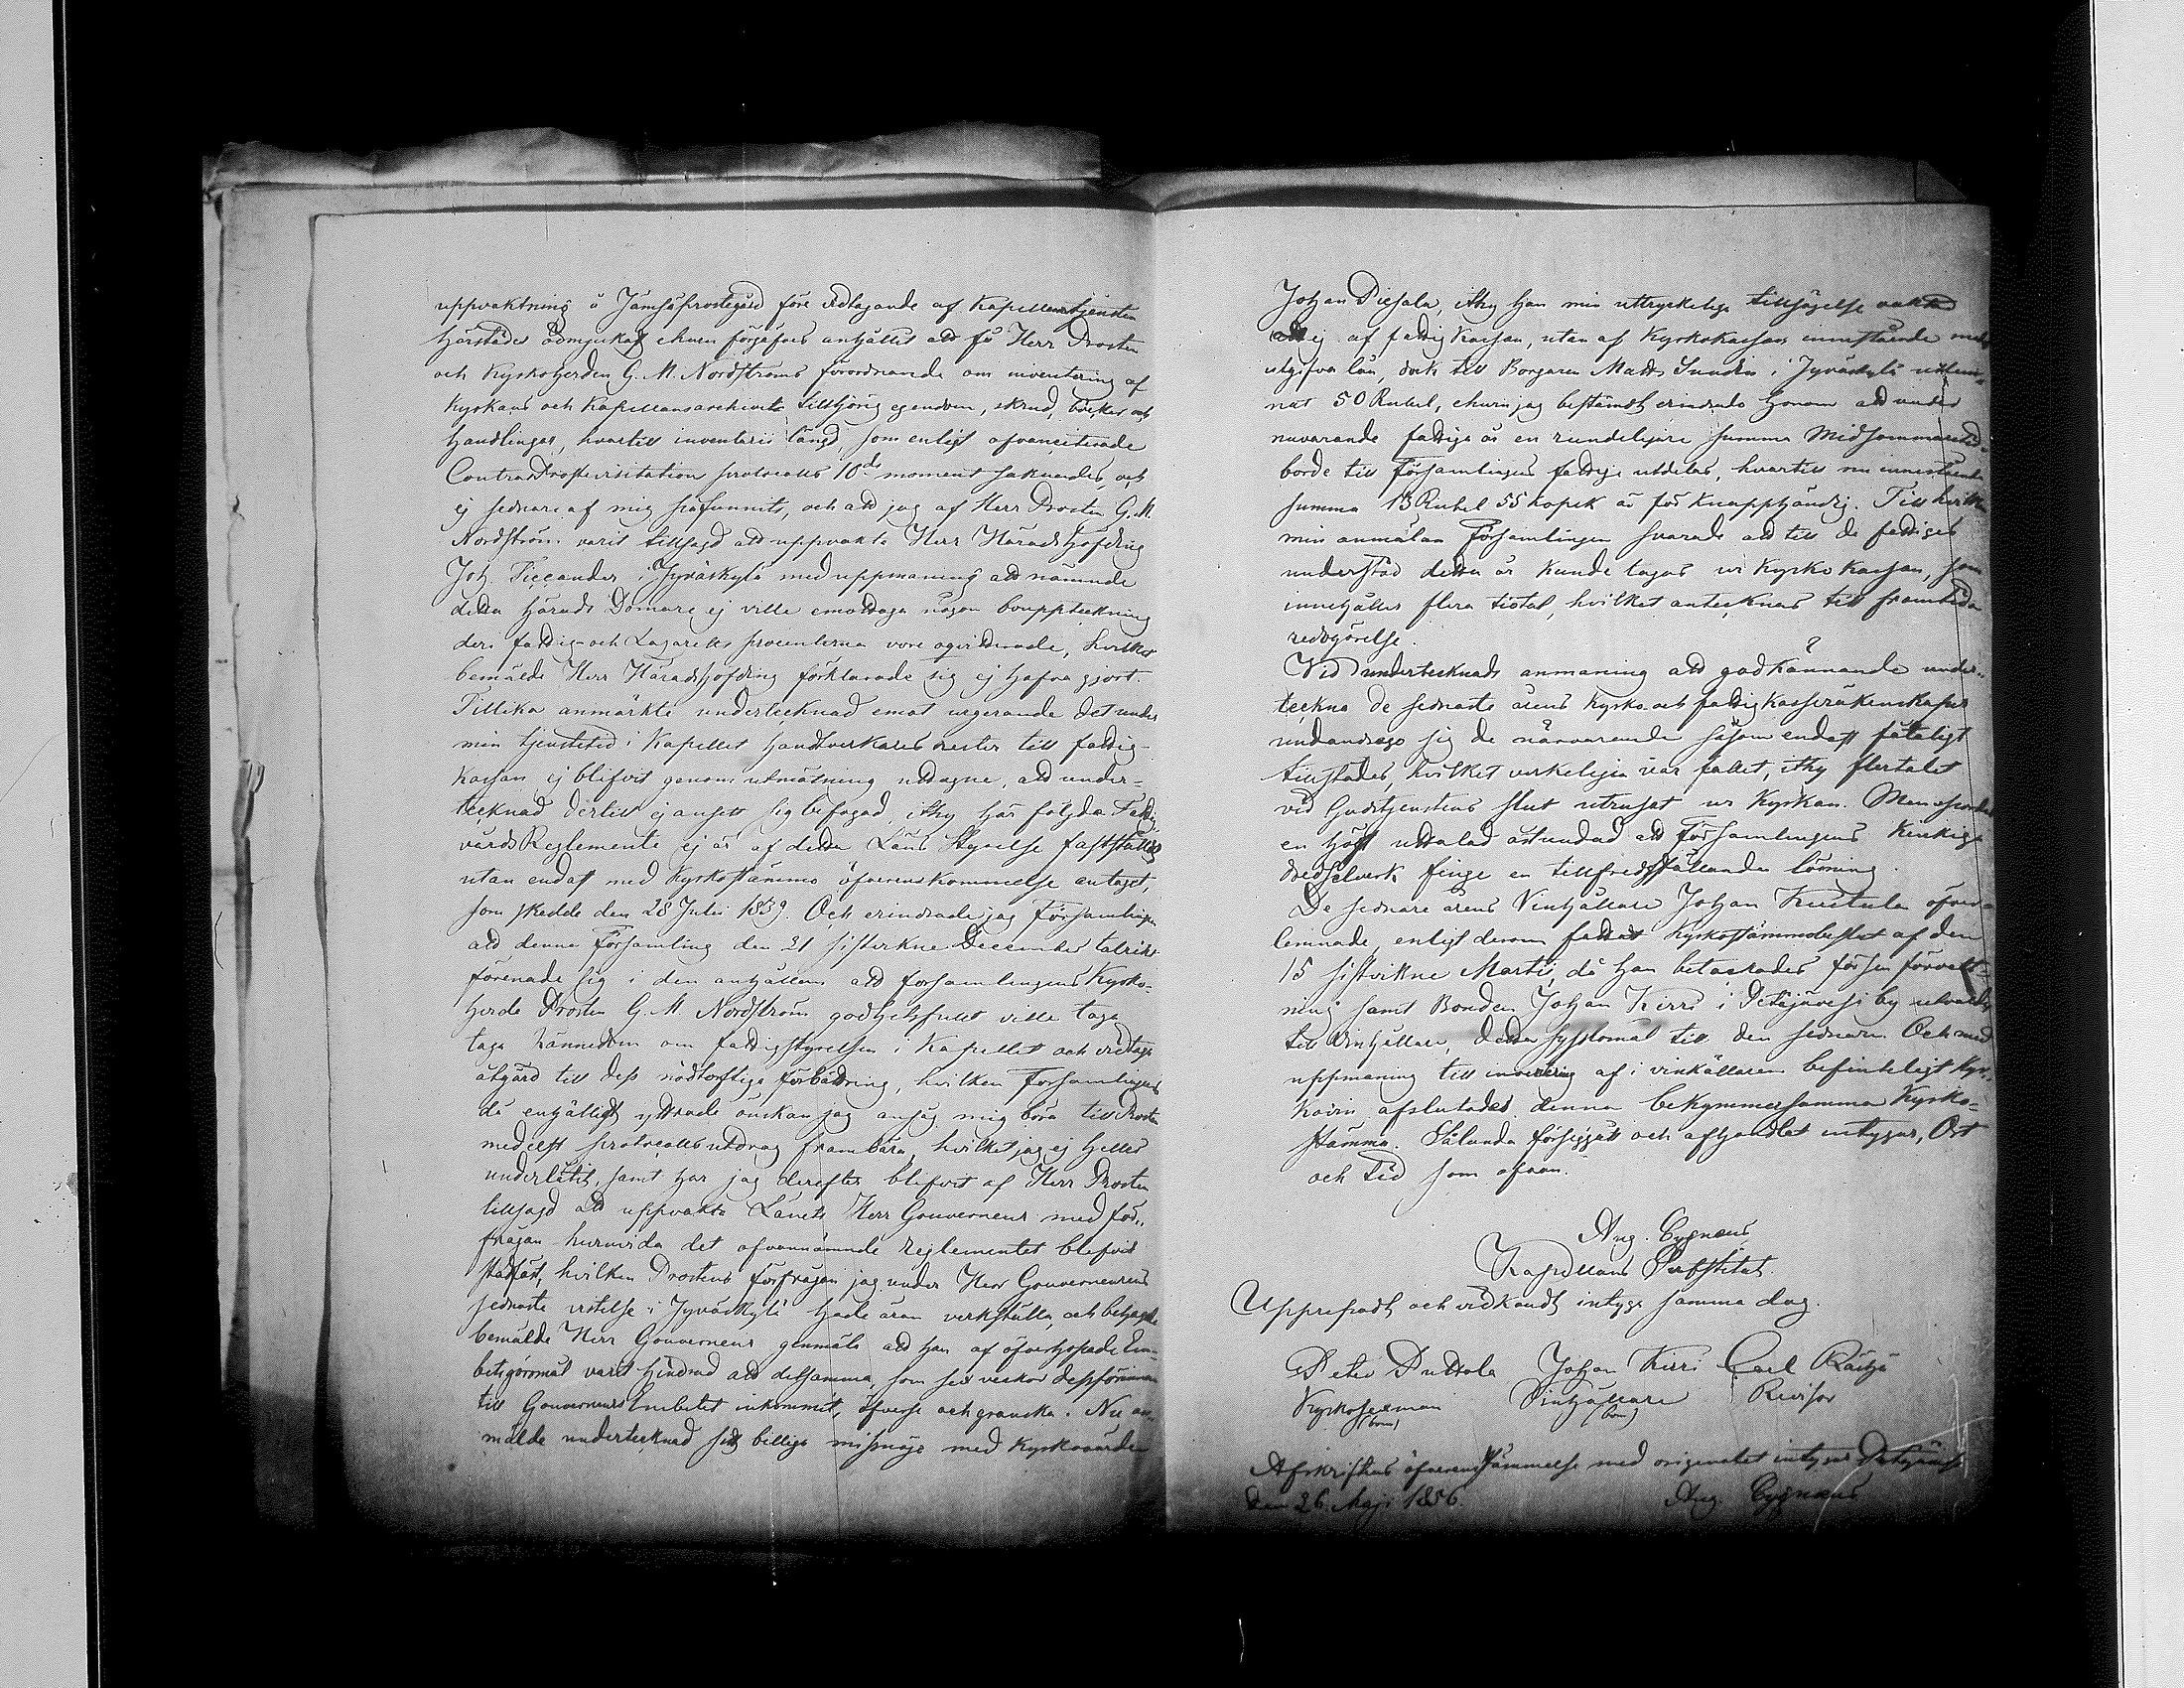 uppvaktning å Jämsä prostegård före vidtagande af Kapellanstjensten
härstädes ödmjukast ehuru förgäfves anhållit att få Herr Prosten
och Kyrkoherden G. M. Nordströms förordnande om inventering af
Kyrkans och Kapellans archivets tillhörig egendom, skrud, böcker och
handlingar, hvartill inventarii längd, som enligt ofvanciterade
Contract Prostvisitation protocolls 10de moment saknades, och
ej sednare af mig påfunnits, och att jag af Herr Prosten G. M.
Nordström varit tillsagd att uppvakta Herr Häradshöfding
Joh. Ticcander i Jyväskylä med uppmaning att nämnde
detta härads Domare ej ville emottaga någon bouppteckning
deri fattig- och Lazaretts procenterna vore oqvitterade, hvilket
bemälde Herr Häradshöfding förklarade sig ej hafva gjort.
Tillika anmärkte undertecknad emot urgerande det under
min tjenstetid i Kapellet handtverkares rester till fattig-
kassan ej blifvit genom utmätning uttagne, att under-
tecknad dertill ej ansett sig befogad, ithy här följda Fattig-
vårds Reglemente ej är af detta Läns Styrelse fastställdt
utan endast med Kyrkostämmo öfverenskommelse antaget,
som skedde den 28 Julii 1839. Och erindrade jag Församlingen
att denna Församling den 21 sistvikne December talrikt
förenade sig i den anhållan att församlingens Kyrko-
herde Prosten G. M. Nordström godhetsfullt ville taga
taga kännedom om fattigstyrelsen i Kapellet och vidtaga
åtgärd till dess nödtorftiga förbättring, hvilken Församlingens
då enhälligt yttrade önskan jag ansåg mig böra till Prosten
medelst protocolls utdrag frambära, hvilket jag ej heller
underlåtit, samt har jag derefter blifvit af Herr Prosten
tillsagd att uppvakta Länets Herr Gouverneur med för-
frågan huruvida det ofvannämnde reglementet blefvit
stadfäst, hvilken Prostens förfrågan jag under Herr Gouverneurens
sednaste vistelse i Jyväskylä hade äran verkställa, och behagade
bemälde Herr Gouverneur genmäla att han af öfverhopade Em-
betsgöromål varit hindrad att detsamma, som sex veckor dessförinnan
till Gouverneurs Embetet inkommit, öfverse och granska. Nu an-
mälde undertecknad sitt billiga missnöje med Kyrkovärden
Johan Piesala, ithy han min uttryckeliga tillsägelse
att ej af fattig Kassan, utan af Kyrkokassans innestående medel
utgifva lån, dock till Borgaren Matts Sundin i Jyväskylä utläm-
nat 50 Rubel, ehuru jag bestämdt erindrade honom att under
nuvarande fattiga år en rundeligare summa Midsommarstid
borde till Församlingens fattige utdelas, hvartill nu innestående
summa 13 Rubel 55 kopek är för knapphändig. Till hvilken
min anmälan Församlingen svarade att till de fattiges
understöd detta år kunde tagas ur Kyrko Kassan, som
innehåller flera tiotal, hvilket antecknas till framtida
redogörelse.
Vid undertecknads anmaning att godkännande under-
teckna de sednaste årens Kyrko och fattig Kasseräkenskaper
undandrogo sig de närvarende såsom endast fåtaligt
tillstädes, hvilket verkeligen var fallet, ithy flertalet
vid Gudstjenstens slut utrusat ur Kyrkan. Men spordes
en högt uttalad åstundad att Församlingens kinkiga
fingo en tillfredsställande lösning.
De sednare årens Vinhållare Johan Kustula öfver-
lemnade, enligt derom fattadt Kyrkostämmobeslut af den
15 sistvikne Martii, då han betackades för sin förvalt-
ning samt Bonden Johan Kirri i Petäjävesi by utvaldes
till Vinhållare, detta sysslomål till den sednare. Och med
uppmaning till af i vinkällaren befinteligt Kyr-
kovin afslutades denna bekymmersamma Kyrko-
stämma. Sålunda försiggått och afhandlat intygar, Ort
och tid som ofvan.
Aug. Cygnæus
Kapellans Substitut
Uppreppadt och vidkändt intyga samma dag.
Peter Puttola Johan Kirri Carl Räihä
Kyrkosexman Vinhållare Revisor
(bom) (bom)
Afskriftens öfverensstämmelse med originalet intygar Petäjävesi
den 26 Maji 1856. Aug. Cygnæus